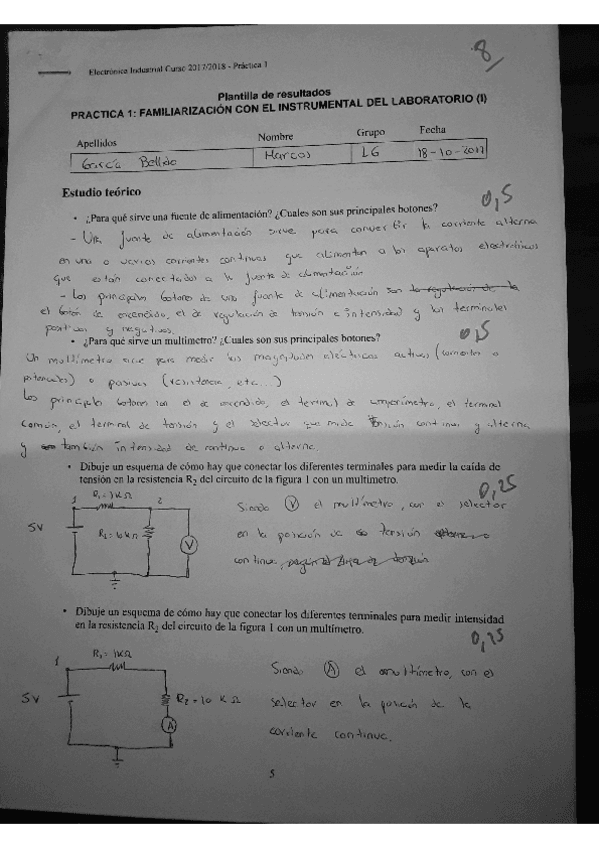 8
Electrónica Industrial Curso 2017/2018 - Práctica 1
Plantilla de resultados
PRACTICA 1: FAMILIARIZACIÓN CON EL INSTRUMENTAL DEL LABORATORIO (I)
Apellidos Nombre Grupo Fecha
García Bellido Marcos L6 18-10-2017
Estudio teórico
0,5
• ¿Para qué sirve una fuente de alimentación? ¿Cuales son sus principales botones?
- Una fuente de alimentación sirve para convertir la corriente alterna
en una o varias corrientes continuas que alimentan a los aparatos electrónicos
que están conectados a la fuente de alimentación
- Los principales botones de una fuente de alimentación son la regulación de la
el botón de encendido, el de regulación de tensión e intensidad y los terminales
positivos y negativos.
0,5
• ¿Para qué sirve un multimetro? ¿Cuales son sus principales botones?
Un multímetro sirve para medir las magnitudes eléctricas activas (corrientes o
potenciales) o pasivas (resistencia, etc...)
Los principales botones son el de encendido, el terminal de amperímetro, el terminal
común, el terminal de tensión y el selector que mide tensión continua y alterna
y también intensidad de continua o alterna.
• Dibuje un esquema de cómo hay que conectar los diferentes terminales para medir la caída de
tensión en la resistencia R2 del circuito de la figura 1 con un multimetro.
0,25
1 R1=1KΩ 2
5V
R2=10KΩ
V
Siendo V el multímetro, con el selector
en la posición de tensión
continua,
• Dibuje un esquema de cómo hay que conectar los diferentes terminales para medir intensidad
en la resistencia R2 del circuito de la figura 1 con un multímetro.
0,25
1 R1=1KΩ
5V
R2=10 KΩ
A
Siendo A el multímetro, con el
selector en la posición de la
corriente continua.
5